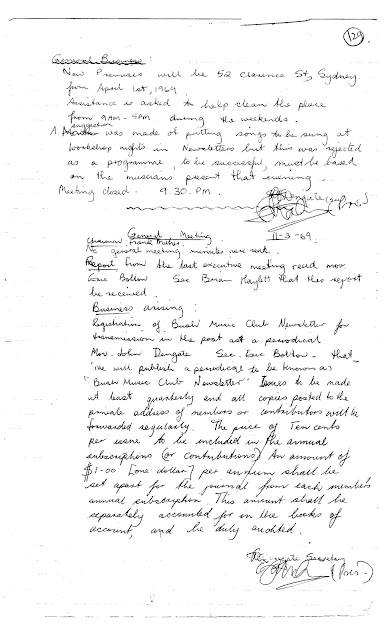 129
General Business :
New Premises will be 52 Clarence St, Sydney
from April 1st, 1969
Assistance is asked to help clean the place
from 9AM - 4PM during the weekends.
suggestion
A was made of putting songs to be sung at
workshop nights in Newsletters but this was rejected
as a programme, to be successful, must be based
on the musicians present that evening.
Meeting closed 9.30. PM.
(Pres)
General Meeting 11-3-69.
Chairman Frank
No general meeting minutes were sent.
Report from the last executive meeting read mov.
Eric Bolton Sec Brian Haylett that this report
be received.
Business arising:
Registration of Bush Music Club Newsletter for
transmission in the post as a periodical
Mov. John Dengate Sec. Eric Bolton - that
"We will publish a periodical to be known as
"Bush Music Club Newsletter" Issues to be made
at least quarterly and all copies posted to the
private address of members or contributors will be
forwarded regularly. The price of Ten cents
per issue to be included in the annual
subscriptions (or contributions) An amount of
$1-00 [one dollar] per annum shall be
set apart for the journal from each member's
annual subscription. This amount shall be
separately accounted for in the books of
account, and be duly audited.
Dengate Secretary
(Pres.)